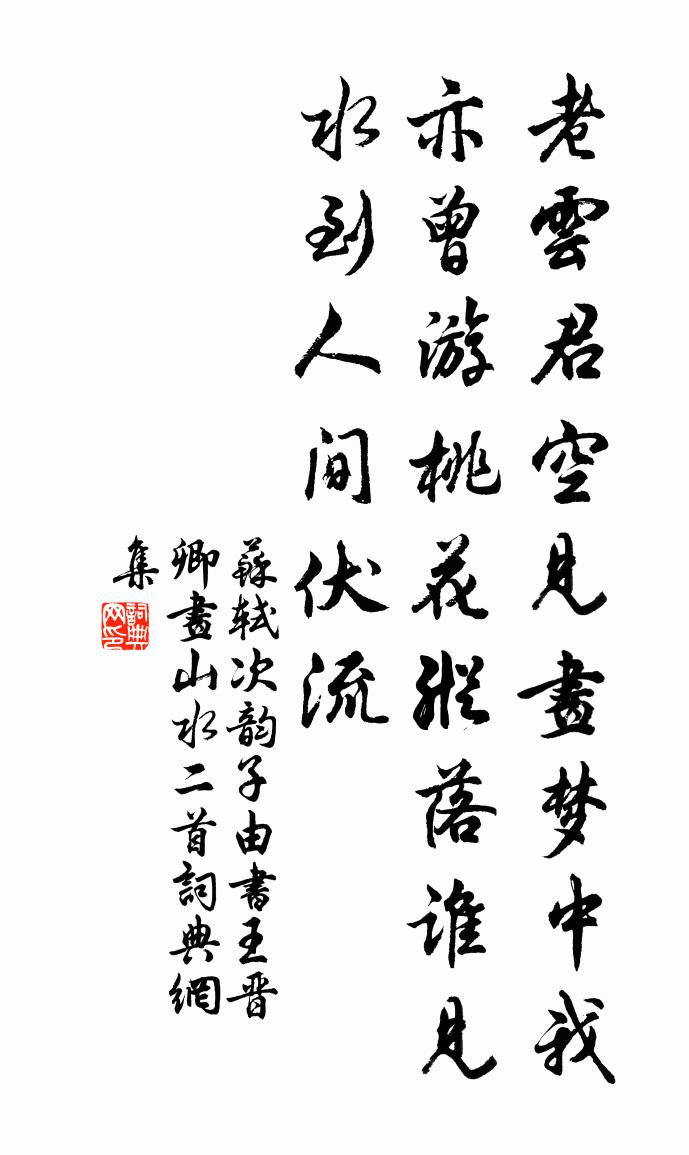 老雲君空見畫梦中我
亦曾游桃花縱落誰見
水到人间伏流
蘇軾次韵子由書王晋
卿畫山水二首詞典網
集
詞典
网印